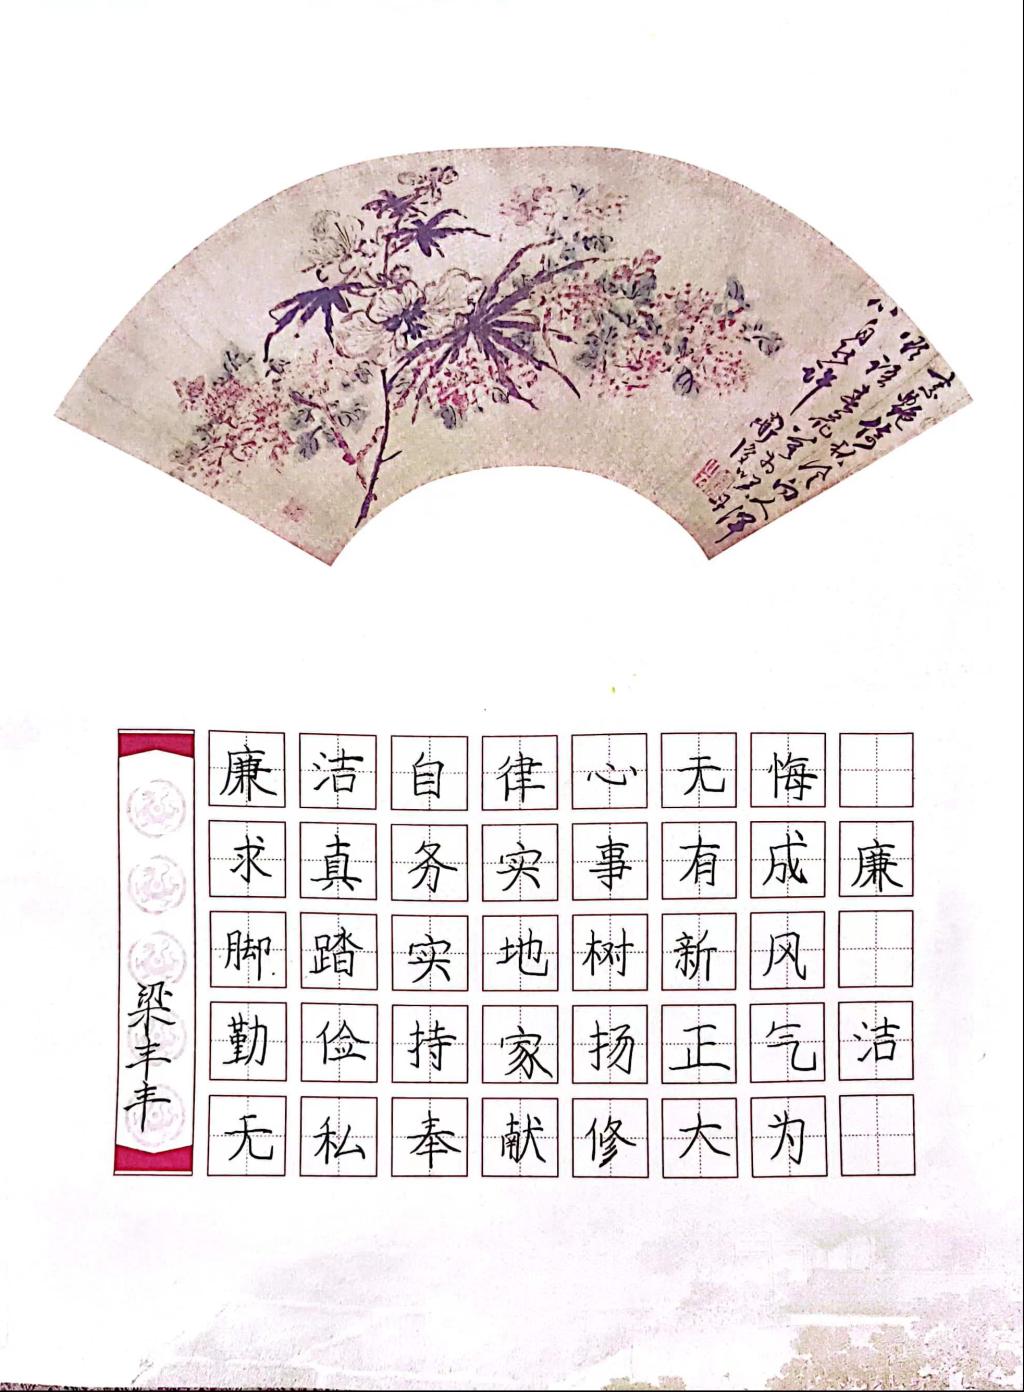 廉洁
廉洁自律心无悔
求真务实事有成
脚踏实地树新风
勤俭持家扬正气
无私奉献修大为
梁丰丰